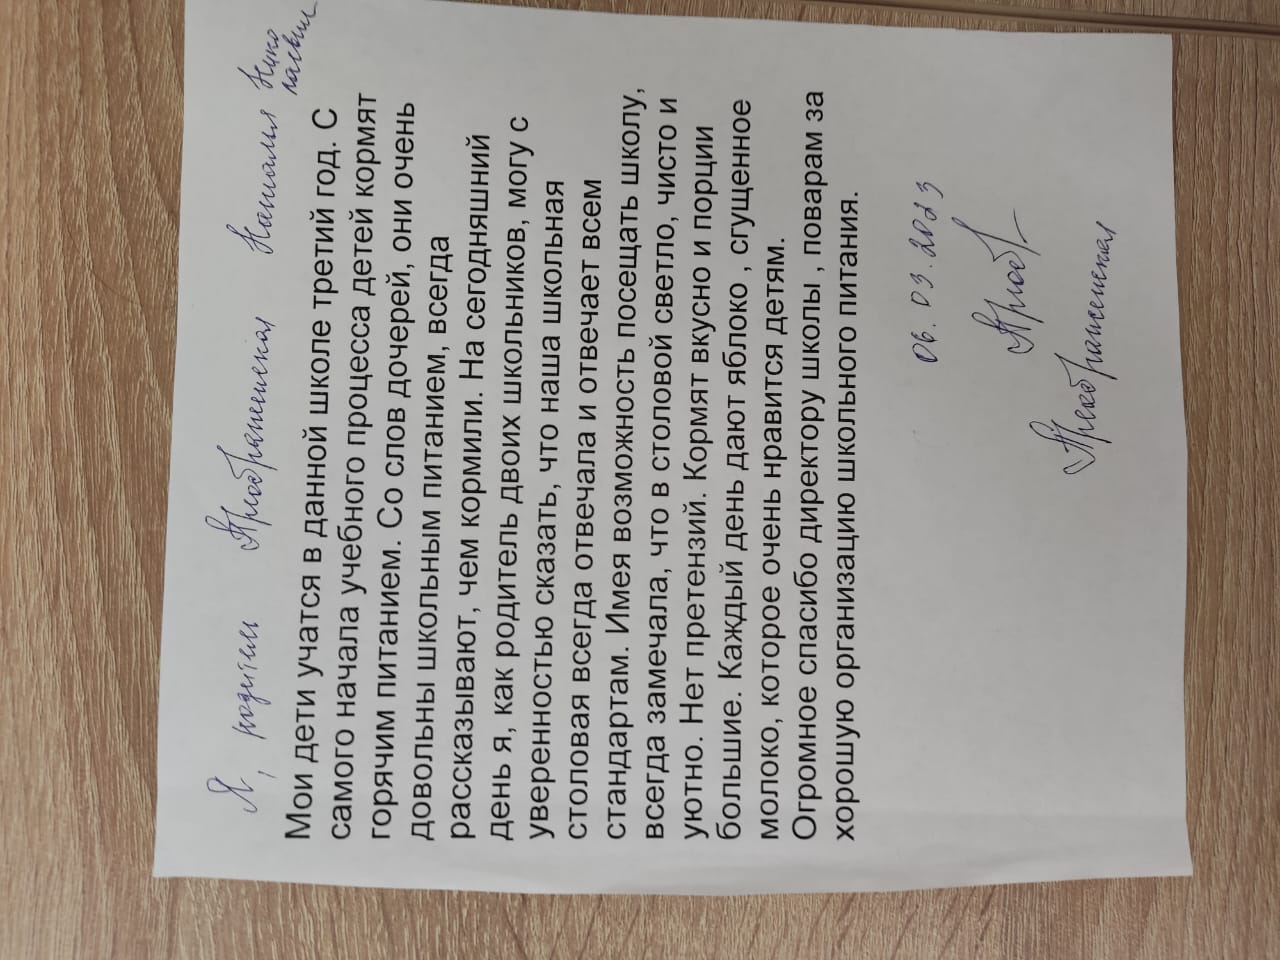 Я, родитель Преображенская Наталия Нико
лаевна
Мои дети учатся в данной школе третий год. С
самого начала учебного процесса детей кормят
горячим питанием. Со слов дочерей, они очень
довольны школьным питанием, всегда
рассказывают, чем кормили. На сегодняшний
день я, как родитель двоих школьников, могу с
уверенностью сказать, что наша школьная
столовая всегда отвечала и отвечает всем
стандартам. Имея возможность посещать школу,
всегда замечала, что в столовой светло, чисто и
уютно. Нет претензий. Кормят вкусно и порции
большие. Каждый день дают яблоко , сгущенное
молоко, которое очень нравится детям.
Огромное спасибо директору школы , поварам за
хорошую организацию школьного питания.
06.03.2023
Преображенская